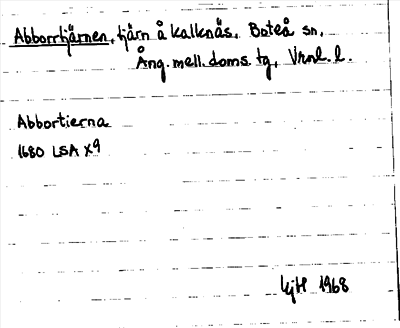 Abborrtjärnen, tjärn å Kalknäs, Boteå sn,
Ång. mell. doms. tg, Vrnl. l.
Abbortierna
1680 LSA X9
KjH 1968